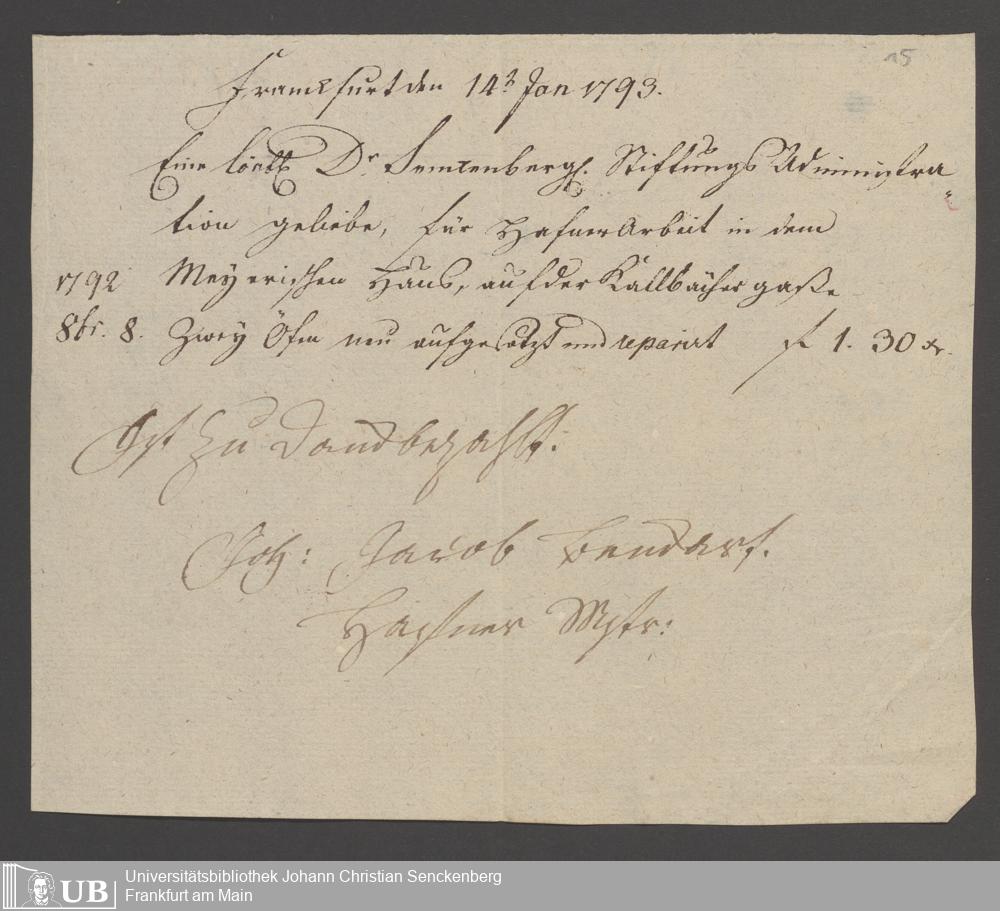 15
Franckfurt den 14t Jan 1793.
Eine löbl. Dr. Senckenbergs. Stiftungs Administra
tion geliebe, für Hafner Arbeit in dem
1792 Meyerischen Haus, auf der Kallbächer gaße
8br. 8. Zwey Öfen neu aufgesetzt und reparirt f 1. 30 xr.
zu Danck bezahlt.
Joh: Jacob Bendarf.
Haffner Mstr:
UB
Universitätsbibliothek Johann Christian Senckenberg
Frankfurt am Main